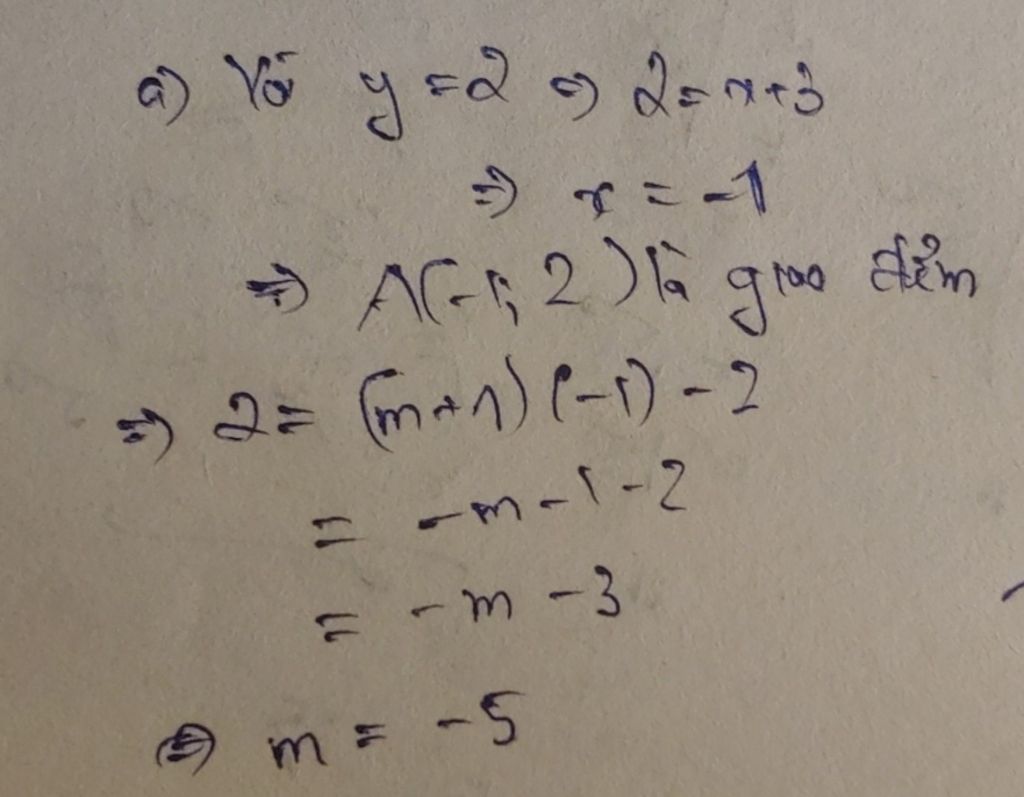 a) Với y = 2 => 2 = x + 3
=> x = -1
=> A(-1; 2) là giao điểm
=> 2 = (m + 1) (-1) - 2
= -m - 1 - 2
= -m - 3
=> m = -5